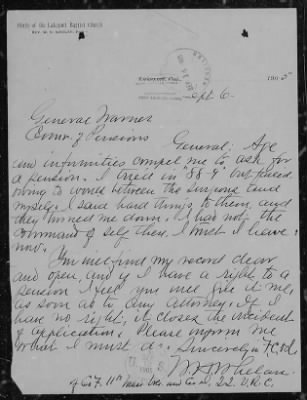 Study of the Lakeport Baptist Church
REV. W. S. WHELAN, Pastor
Lakeport, Cal. Sept 6- 1905
General Warner
Comr. of Pensions
General; Age
and infirmities compel me to ask for
a pension. I tried in '88-9' but failed
owing to words between the surgeons and
myself. I said hard things to them, and
they turned me down. I had not the
command of self then, I trust I have
now.
You will find my record clear
and open, and if I have a right to a
pension I feel you will give it me
as soon as to any Attorney. If I
have no right, it closes the incident
of application. Please inform me
what I must do. Sincerely in F.C.&L.
Whelan.
of Co F. 11th Mass Vols and Co. 22 V.R.C.